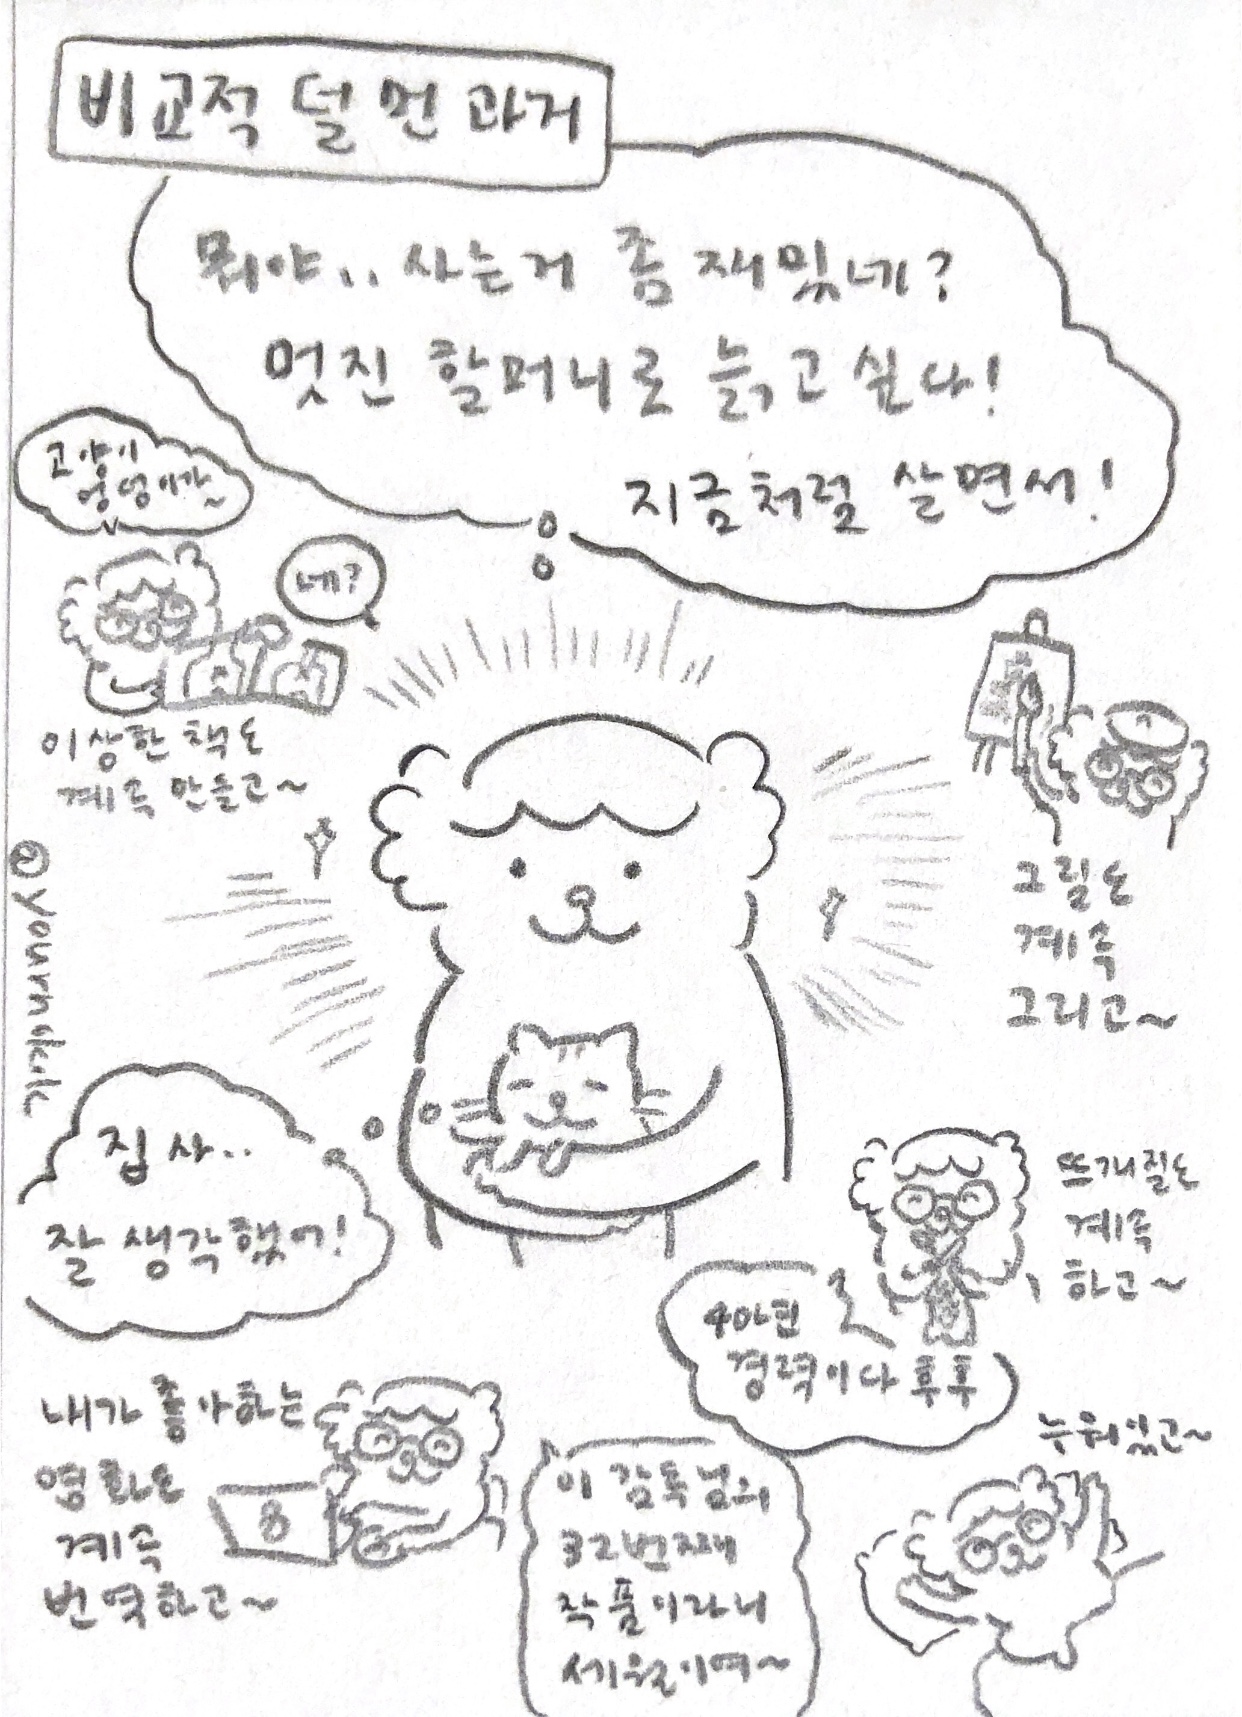 비교적 덜 먼 과거
뭐야.. 사는거 좀 재밌네?
멋진 할머니로 늙고 싶다!
지금처럼 살면서!
고양이
엉덩이가~
네?
이상한 책도
계속 만들고~
그림도
계속
그리고~
집사..
잘 생각했어!
뜨개질도
계속
하고~
40년
경력이다 후후
내가 좋아하는
영화도
계속
번역하고~
8
이 감독님의
32번째
작품이라니
세월이여~
누워있고~